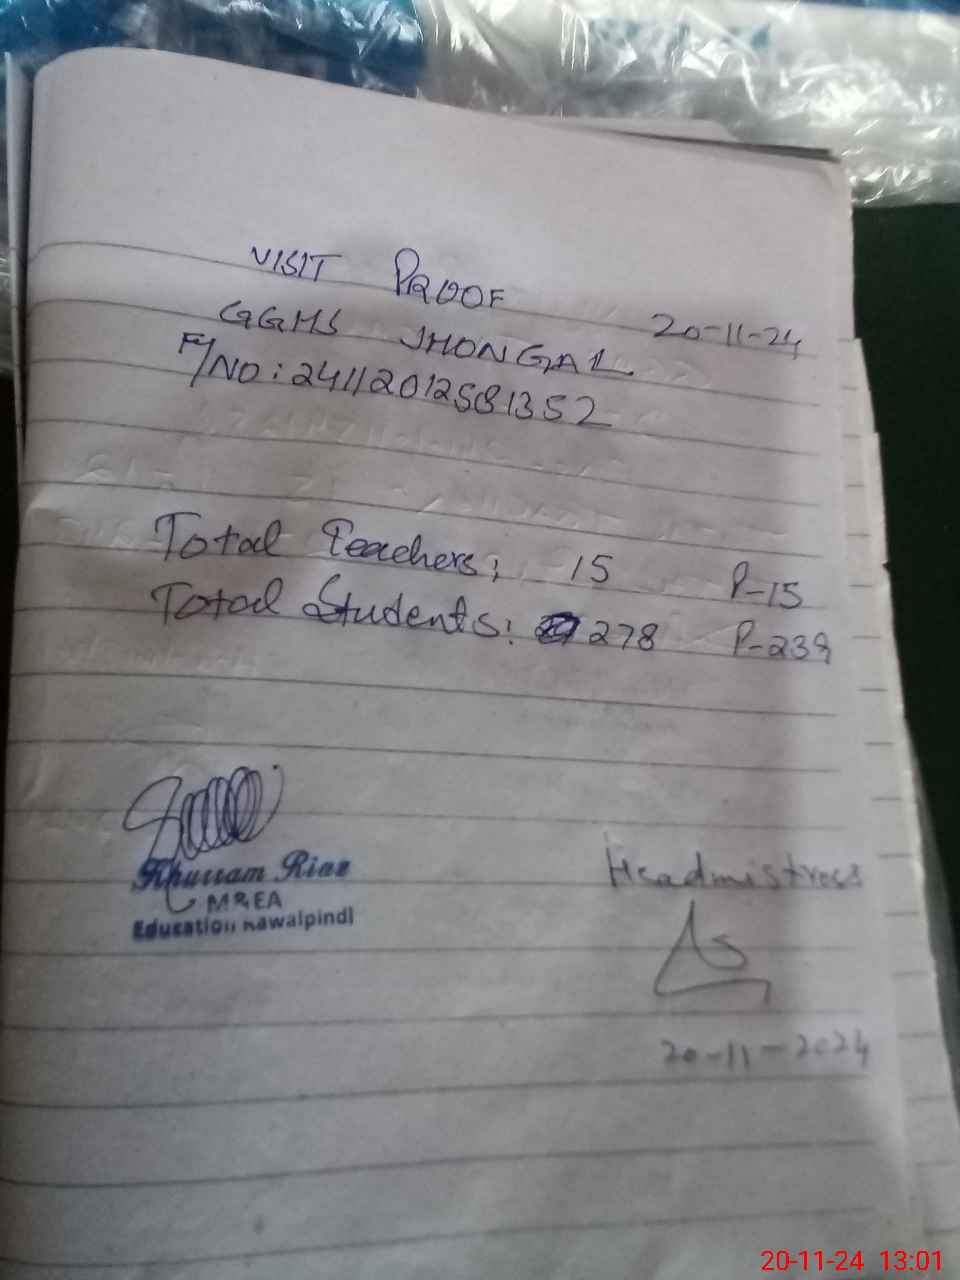 VISIT PROOF
GGMS JHONGAL 20-11-24
F/NO: 24112012581352
Total Teachers; 15 P-15
Total Students: 278 P-239
Khurram Riaz
M&EA
Education Rawalpindi
Headmistress
20-11-2024
20-11-24 13:01